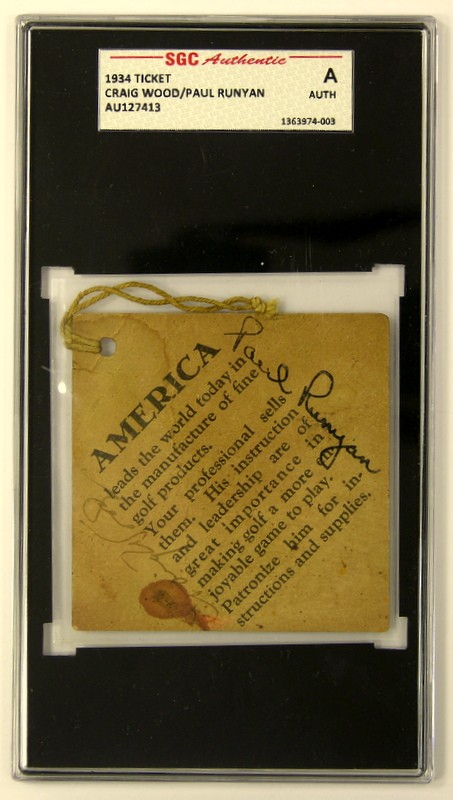 SGC Authentic
1934 TICKET
CRAIG WOOD/PAUL RUNYAN
AU127413
A
AUTH
1363974-003
Paul Runyan
AMERICA
leads the world today in
the manufacture of fine
golf products.
Your professional sells
them. His instruction
and leadership are of
great importance in
making golf a more
joyable game to play.
Patronize him for in-
structions and supplies.